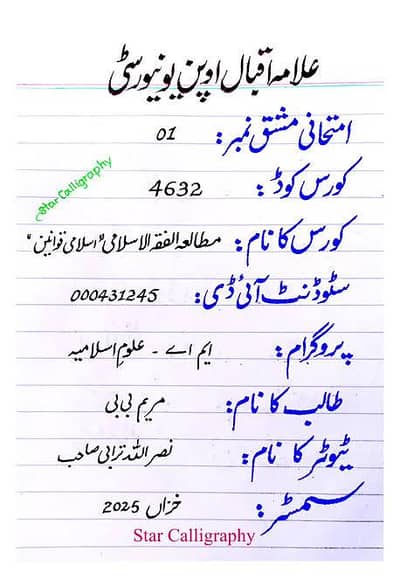 علامہ اقبال اوپن یونیورسٹی
امتحانی مشق نمبر: 01
کورس کوڈ: 4632
Star Calligraphy
کورس کا نام: مطالعہ الفقہ الاسلامی "اسلامی قوانین"
سٹوڈنٹ آئی ڈی: 000431245
پروگرام: ایم اے ۔ علوم اسلامیہ
طالب کا نام: مریم بی بی
ٹیوٹر کا نام: نصر اللہ ترابی صاحب
سمسٹر: خزاں 2025
Star Calligraphy